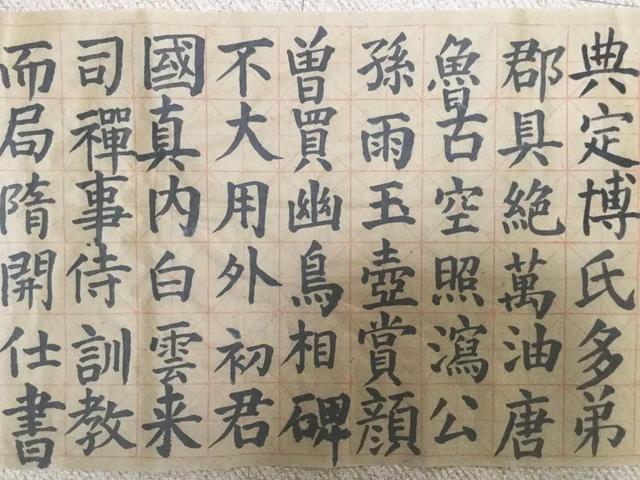 典定博氏多弟
郡具絶萬油唐
魯古空照瀉公
孫雨玉壺賞顔
曽買幽鳥相碑
不大用外初君
國真内白雲来
司禪事侍訓教
而局隋開仕書